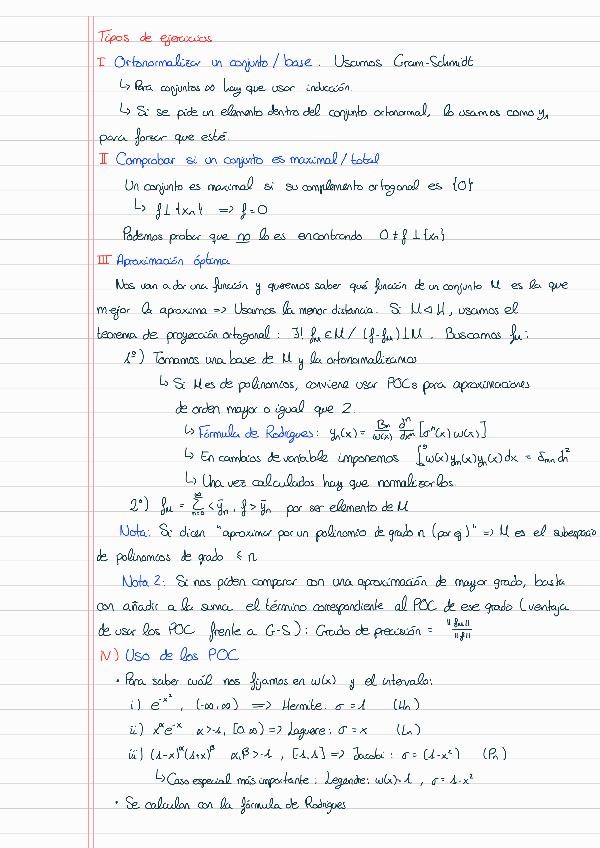 Tipos de ejercicios
I Ortonormalizar un conjunto / base. Usamos Gram-Schmidt
↳ Para conjuntos ∞ hay que usar inducción.
↳ Si se pide un elemento dentro del conjunto ortonormal, lo usamos como y₁
para forzar que esté.
II Comprobar si un conjunto es maximal / total
Un conjunto es maximal si su complemento ortogonal es {0}
↳ f ⊥ {xₙ} => f = 0
Podemos probar que no lo es encontrando 0 ≠ f ⊥ {xₙ}
III Aproximación óptima
Nos van a dar una función y queremos saber qué función de un conjunto M es la que
mejor la aproxima => Usamos la menor distancia. Si M ⊲ H, usamos el
teorema de proyección ortogonal: ∃! f_M ∈ M / (f-f_M) ⊥ M. Buscamos f_M:
1º) Tomamos una base de M y la ortonormalizamos
↳ Si M es de polinomios, conviene usar POCs para aproximaciones
de orden mayor o igual que 2.
↳ Fórmula de Rodrigues: yₙ(x) = Bₙ/ω(x) dⁿ/dxⁿ [σⁿ(x) ω(x)]
↳ En cambios de variable imponemos ∫ₐᵇ ω(x) yₘ(x) yₙ(x) dx = δₘₙ dₙ²
↳ Una vez calculados hay que normalizarlos.
2º) f_M = Σ < ỹₙ, f > ỹₙ por ser elemento de M
Nota: Si dicen "aproximar por un polinomio de grado n (por ej)" => M es el subespacio
de polinomios de grado ≤ n
Nota 2: Si nos piden comparar con una aproximación de mayor grado, basta
con añadir a la suma el término correspondiente al POC de ese grado (ventaja
de usar los POC frente a G-S): Grado de precisión = ‖f_M‖/‖f‖
IV) Uso de los POC
• Para saber cuál nos fijamos en ω(x) y el intervalo:
i) e^-x², (-∞,∞) => Hermite: σ = 1 (Hₙ)
ii) x^α e^-x α>-1, [0,∞) => Laguerre: σ = x (Lₙ)
iii) (1-x)^α (1+x)^β α,β>-1, [-1,1] => Jacobi: σ = (1-x²) (Pₙ)
↳ Caso especial más importante: Legendre: ω(x)=1, σ = 1-x²
• Se calculan con la fórmula de Rodrigues